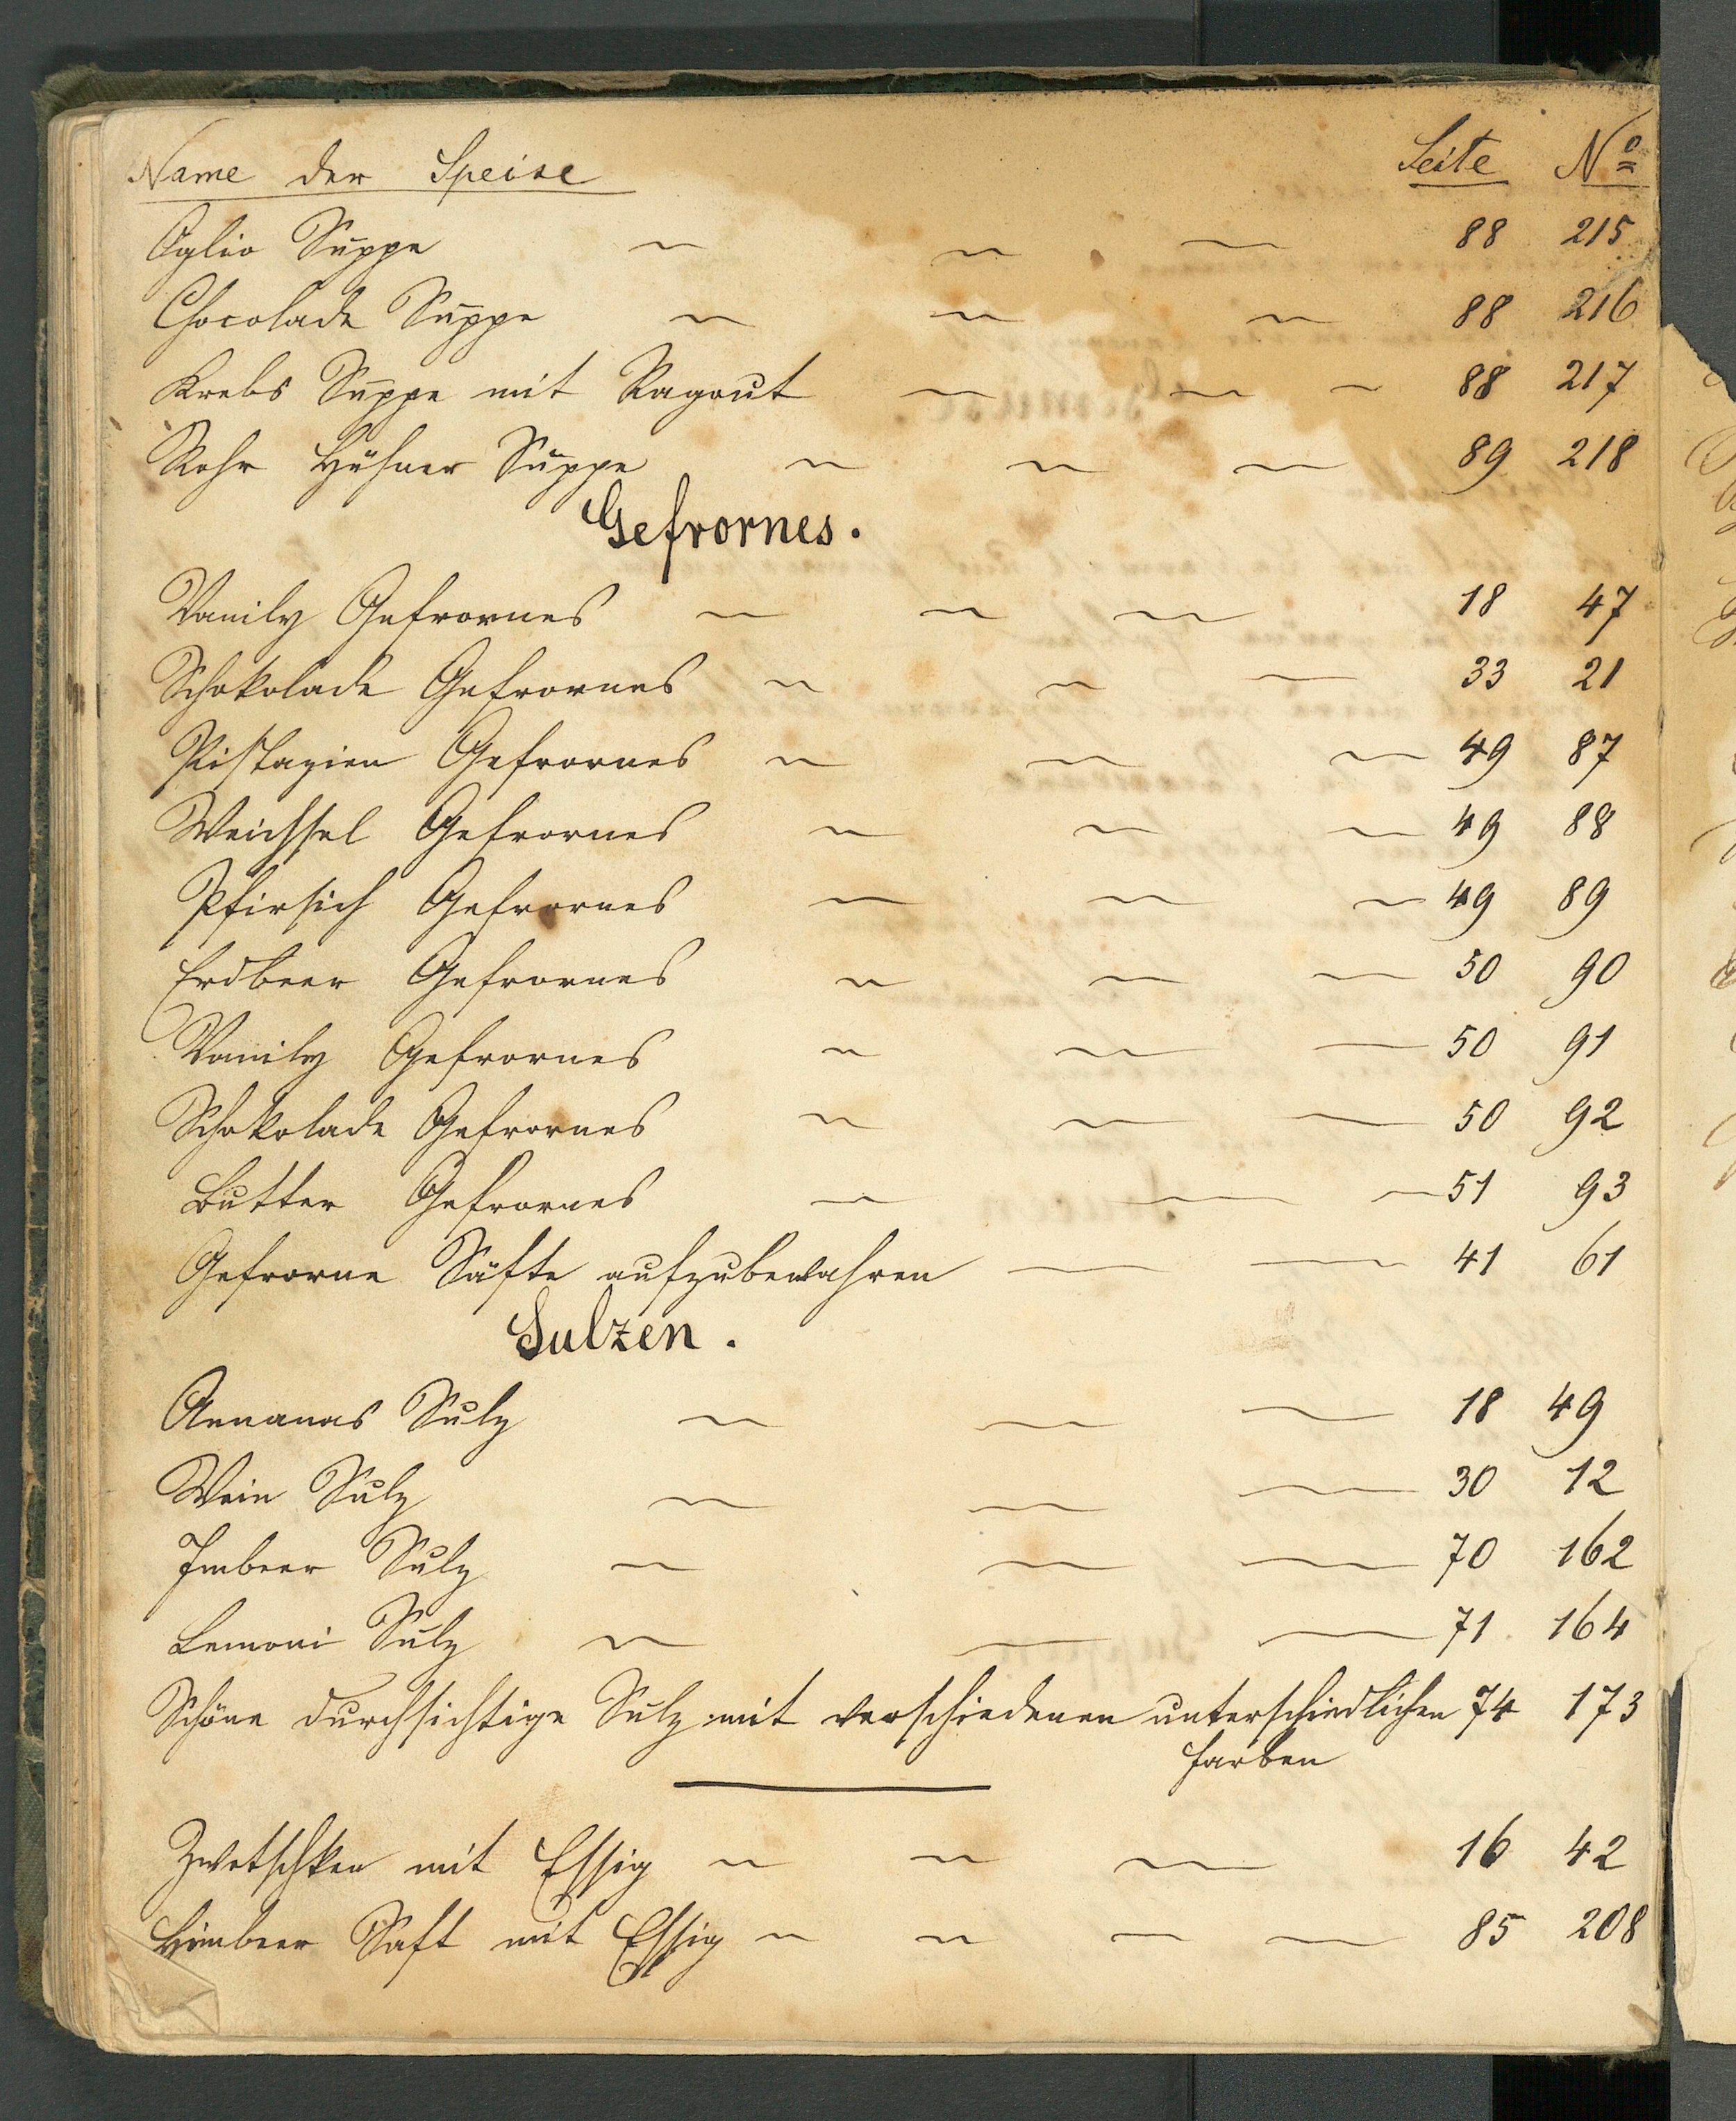 Name der Speise Seite No
Oglio Suppe 88 215
Chocolade Suppe 88 216
Krebs Suppe mit Ragout 88 217
Rohr Hühner Suppe 89 218
Gefrornes.
Vanily Gefrornes 18 47
Schokolade Gefrornes 33 21
Pistazien Gefrornes 49 87
Weichsel Gefrornes 49 88
Pfirsich Gefrornes 49 89
Erdbeer Gefrornes 50 90
Vanily Gefrornes 50 91
Schokolade Gefrornes 50 92
Butter Gefrornes 51 93
Gefrorne Säfte aufzubewahren 41 61
Sulzen.
Annanas Sulz 18 49
Wein Sulz 30 12
Imbeer Sulz 70 162
Lemoni Sulz 71 164
Schöne durchsichtige Sulz mit verschiedenen unterschiedlichen 74 173
Farben
Zwetschken mit Essig 16 42
Himbeer Saft mit Essig 85 208